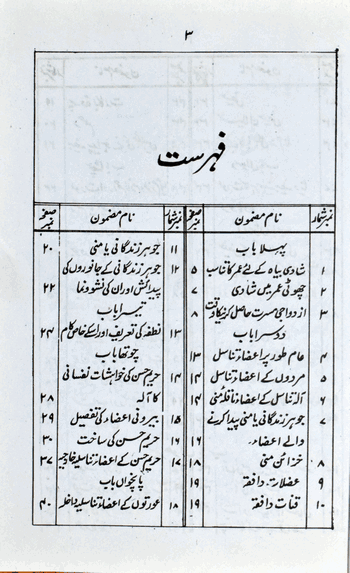 ۳
فہرست
نمبر شمار نام مضمون صفحہ نمبر
پہلا باب
۱ شادی بیاہ کے لئے عمر کا تناسب ۵
۲ چھوٹی عمر میں شادی ۷
۳ ازدواجی مسرت حاصل کرنیکا وقت ۸
دوسرا باب
۴ عام طور پر اعضاء تناسل ۱۳
۵ مردوں کے اعضاء تناسل ۱۴
۶ آلہ تناسل کے اعضاء ناقلہ منی ۱۴
۷ جوہر زندگانی یا منی پیدا کرنے
والے اعضاء ۱۶
۸ خزائن منی ۱۸
۹ عضلات دافقہ ۱۹
۱۰ قنات دافقہ ۱۹
نمبر شمار نام مضمون صفحہ نمبر
۱۱ جوہر زندگانی یا منی ۲۰
۱۲ جوہر زندگانی کے جانوروں کی
پیدائش اور ان کی نشوونما ۲۲
تیسرا باب
۱۳ نطفہ کی تعریف اور اسکے خاص کام ۲۴
چوتھا باب
۱۴ حریم حسن کی خواہشات نفسانی
کا آلہ ۲۸
۱۵ بیرونی اعضاء کی تفصیل ۲۹
۱۶ حریم حسن کی ساخت ۳۰
۱۷ حریم حسن کے اعضاء تناسلیہ خارجیہ ۳۷
پانچواں باب
۱۸ عورتوں کے اعضاء تناسلیہ داخلہ ۴۰